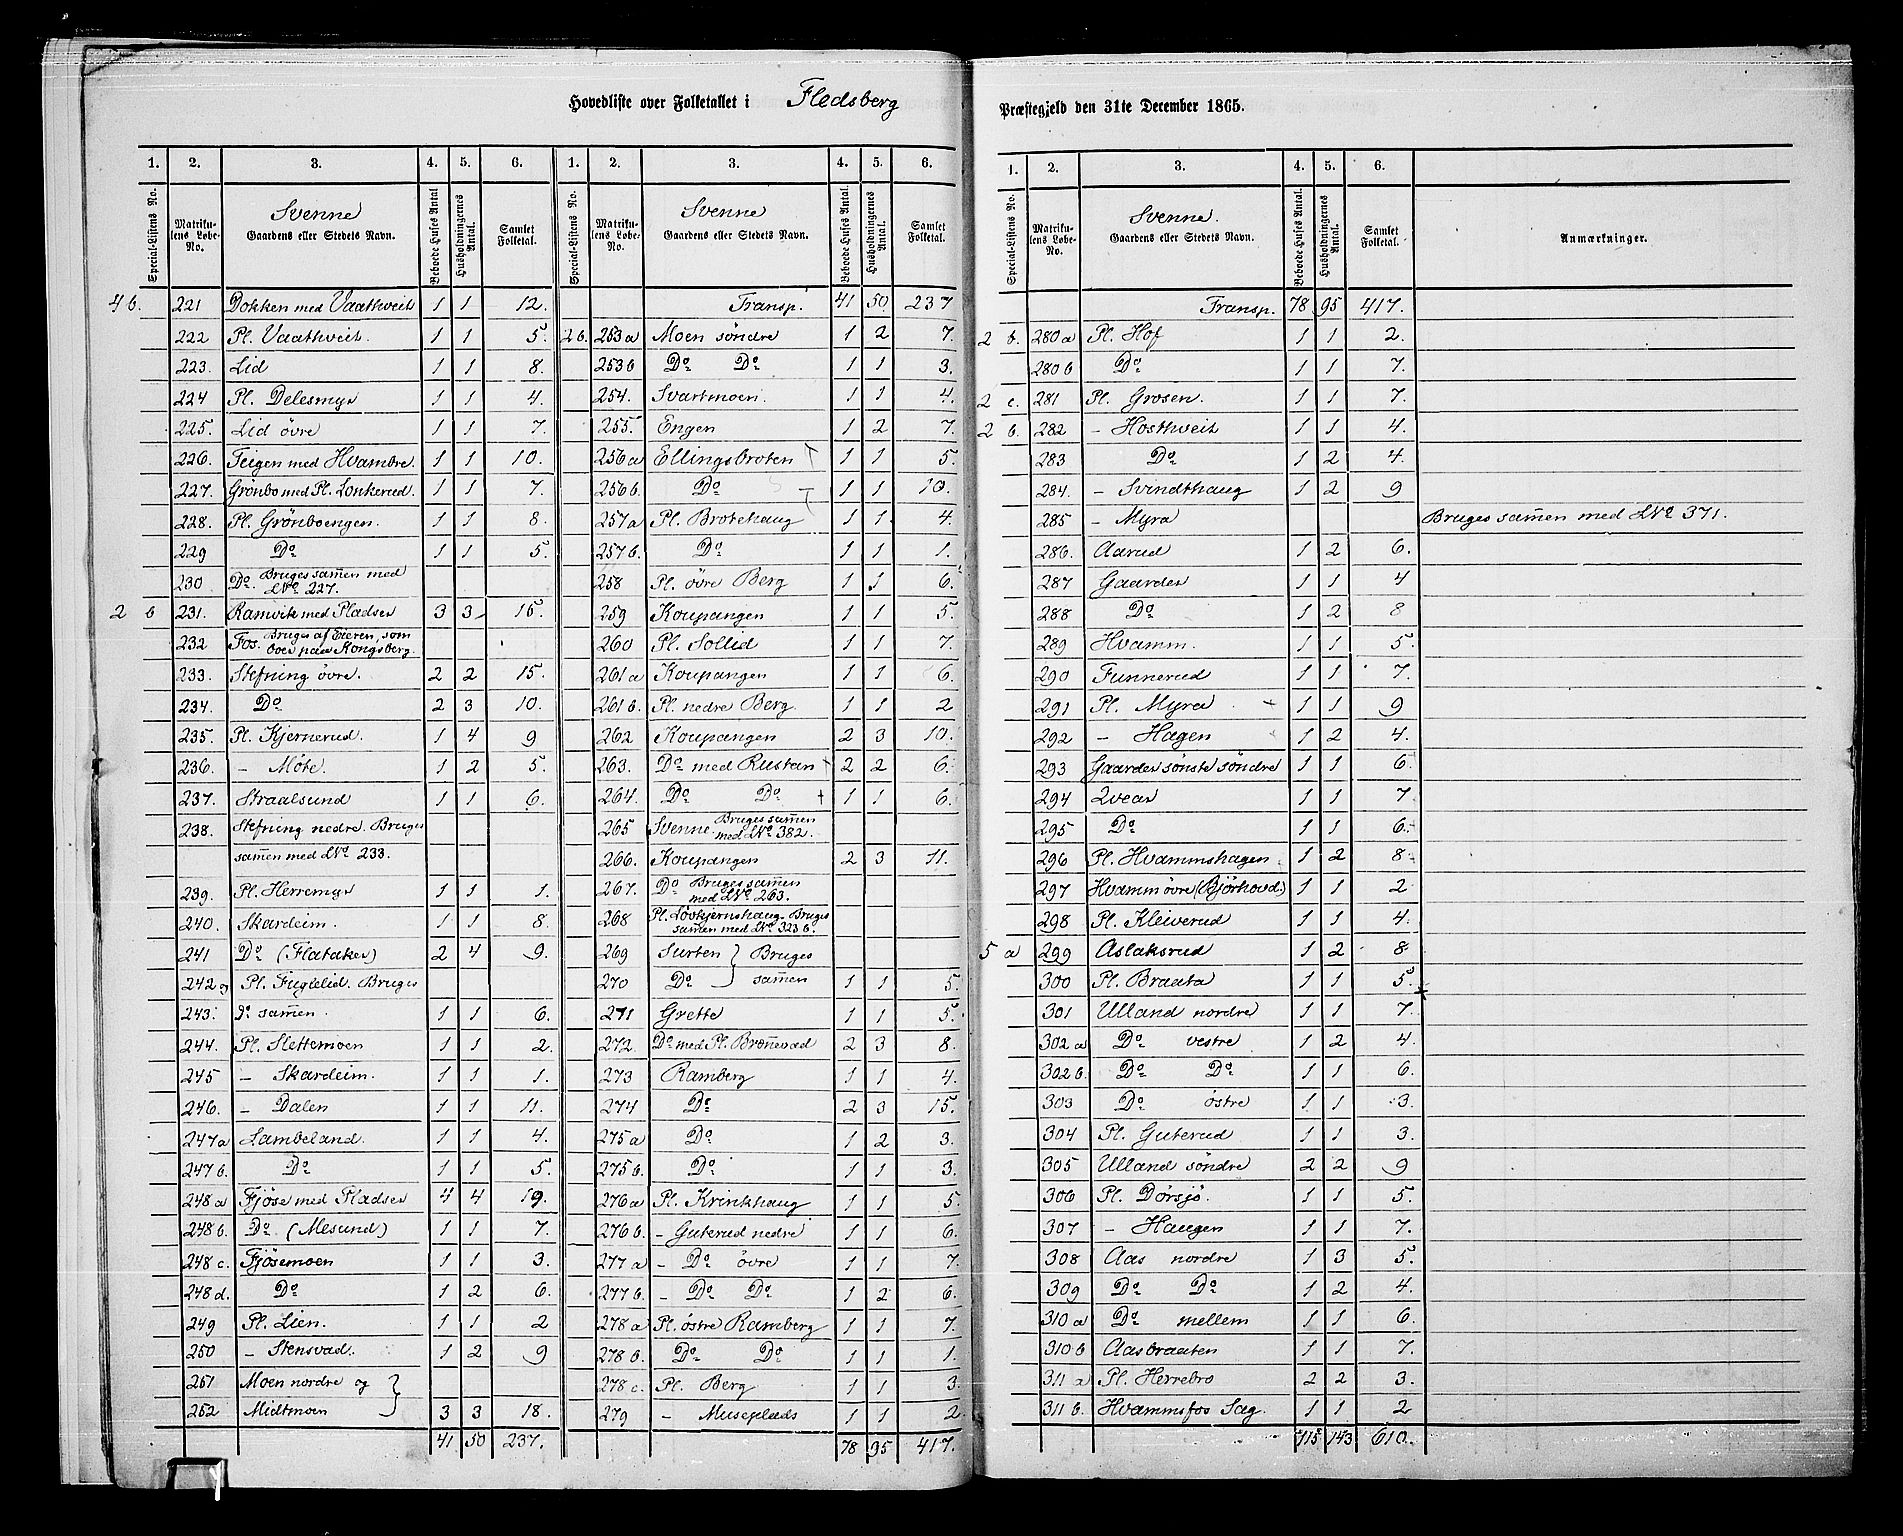 Hovedliste over Folketallet i Flesberg Præstegjeld den 31te December 1865.
1. 2. 3. 4. 5. 6. 1. 2. 3. 4. 5. 6.
Special-Listens No. Matrikulens Løbe-No. Svenne Gaardens eller Stedets Navn. Beboede Huses Antal. Husholdningernes Antal. Samlet Folketal. Special-Listens No. Matrikulens Løbe-No. Svenne Gaardens eller Stedets Navn. Beboede Huses Antal. Husholdningernes Antal. Samlet Folketal.
4 b. 221 Dokken med Vaathveit 1 1 12.
222 Pl. Vaathveit 1 1 5.
223. Lid 1 1 8.
224 Pl. Delesmyr 1 1 4.
225. Lid övre 1 1 7.
226. Teigen med Hvambre. 1 1 10.
227. Grönbo med Pl. Lonkerud. 1 1 7.
228. Pl. Grönboengen. 1 1 8.
229 Do 1 1 5.
230 Do. Bruges sam̄en med LNo 227.
2 b 231. Ramvik med Pladser 3 3 15.
232 Fos. Bruges af Eieren, som boer paa Kongsberg.
233. Stefning övre. 2 2 15.
234. Do 2 3 10.
235. Pl. Kjernerud. 1 4 9
236. - Möte. 1 2 5.
237. Straalsund 1 1 6.
238. Stefning nedre. Bruges
sam̄en med LNo 233.
239. Pl. Herremyr 1 1 1.
240. Skardeim. 1 1 8.
241 Do (Flataker) 2 4 9.
242 og Pl. Fuglelid. Bruges
243. Do sam̄en. 1 1 6.
244. Pl. Slettemoen 1 1 2.
245 - Skardeim. 1 1 1.
246. - Dalen 1 1 11.
247a Lambeland. 1 1 4.
247 b. Do 1 1 5.
248 a Fjöse med Pladser 4 4 19.
248 b. Do (Mesund) 1 1 7.
248 c. Fjösemoen 1 1 3.
248 d. Do 1 2 6.
249 Pl. Lien. 1 1 2
250 - Stensvad. 1 2 9
251 Moen nordre og
252 Midtmoen 3 3 18.
41 50 237.
Transp. 41 50 237
2 b. 253a Moen söndre 1 2 7.
253b Do Do 1 1 3.
254. Svartmoen. 1 1 4.
255. Engen 1 2 7.
256a Ellingsbroten 1 1 5.
256b. Do 1 1 10.
257a Pl. Brotehaug 1 1 4.
257 b. Do 1 1 1.
258 Pl. övre Berg 1 1 6.
259 Koupangen 1 1 5.
260 Pl. Sollid 1 1 7.
261 a Koupangen 1 1 6.
261 b. Pl. nedre Berg. 1 1 2
262 Koupangen 2 3 10.
263. Do med Rustan + 2 2 6.
264. Do Do + 1 1 6.
265 Svenne. Bruges sam̄en med LNo 382.
266. Koupangen 2 3 11.
267. Do Bruges sam̄en med LNo 263.
268 Pl. Lövtjernshaug. Bruges samen med LNo 323 b.
269 Surten } Bruges
270 Do } sam̄en 1 1 5.
271 Grette 1 1 5.
272. Do med Pl. Brōnevad 2 3 8.
273 Ramberg 1 1 4.
274 Do 2 3 15.
275 a Do 1 2 3.
275 b. Do 1 1 3.
276 a Pl. Krinkhaug 1 1 5
276 b. - Guterud nedre 1 1 6.
277 a - Do övre 1 1 7.
277 b. - Do Do 1 2 6.
278 a Pl. östre Ramberg 1 1 7.
278 b. Do Do 1 1 1.
278 c. Pl. Berg 1 1 3.
279 - Museplads 1 1 2
78 95 417.
1. 2. 3. 4. 5. 6.
Special-Listens No. Matrikulens Løbe-No. Svenne. Gaardens eller Stedets Navn. Beboede Huses Antal. Husholdningernes Antal. Samlet Folketal. Anmærkninger.
Transp. 78 95 417.
2 b. 280a Pl. Hof 1 1 2.
280 b Do 1 1 7.
2 c. 281 Pl. Grosen. 1 1 7.
2 b. 282 - Hosthveit 1 1 4.
283 Do 1 2 4.
284. - Svindthaug 1 2 9
285 - Myra Bruges sam̄en med LNo 371.
286. Aarud 1 2 6.
287 Gaarder 1 1 4
288 Do 1 2 8
289 Hvamm. 1 1 5.
290 Funnerud 1 1 7.
291 Pl. Myra + 1 1 9
292 - Hagen 1 2 4.
293 Gaarder sönste söndre 1 1 6
294 Qvear 1 1 7
295 Do 1 1 6.
296 Pl. Hvammshagen 1 2 8
297 Hvamm övre (Björhovd) 1 1 2
298 Pl. Kleiverud 1 1 4.
5 a 299 Aslaksrud 1 2 8
300 Pl. Braata 1 1 5.
301 Ulland nordre 1 1 7.
302 a Do vestre 1 2 4.
302 b. Do Do 1 1 6.
303 Do östre 1 1 3.
304 Pl. Guterud 1 1 3.
305 Ulland söndre 2 2 9
306 Pl. Dörsjö. 1 1 5.
307 - Haugen 1 1 7.
308 Aas nordre 1 3 5.
309 Do Do 1 2 4.
310 a Do mellem 1 1 6.
310 b Aasbraaten 1 1 7.
311 a Pl. Herrebro 2 2 3.
311 b. Hvammsfos Sag. 1 1 2
115 143 610.